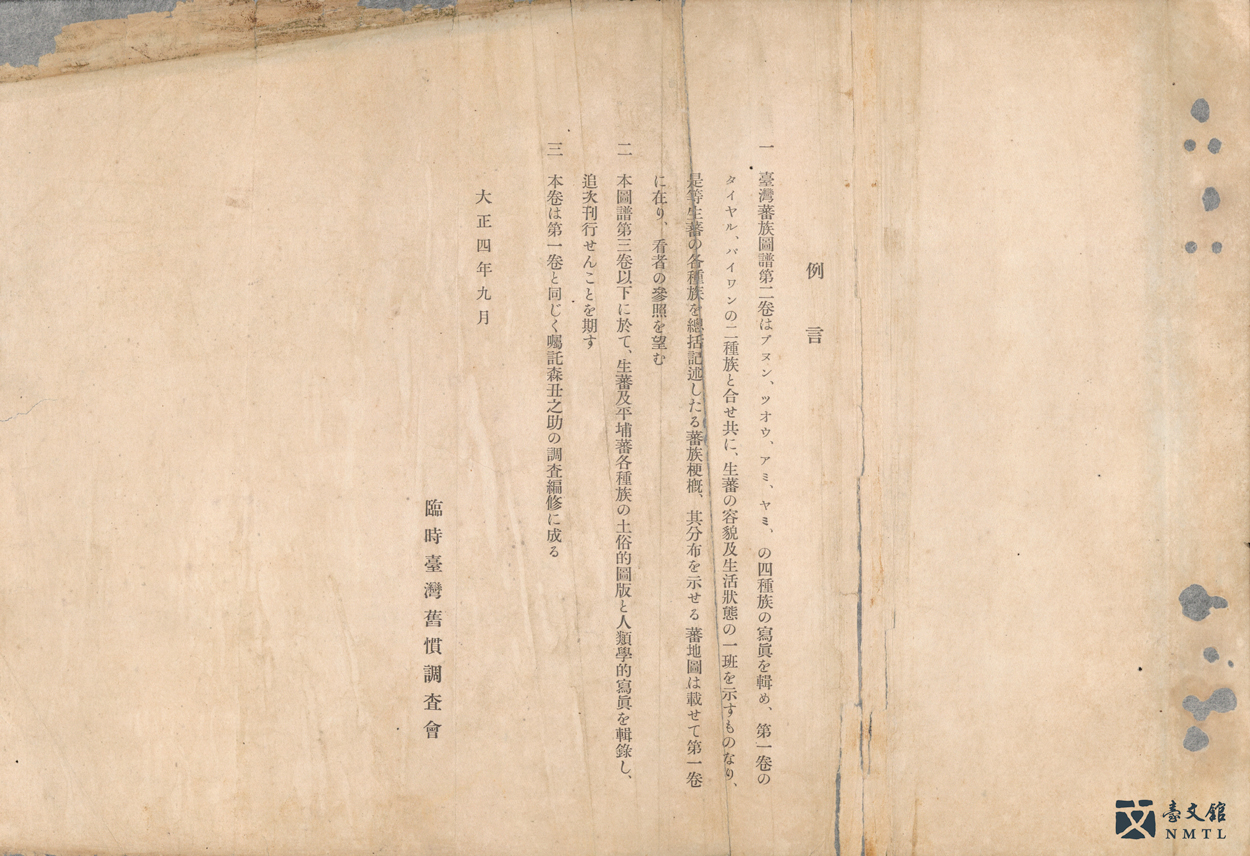 例言
一 臺灣蕃族圖譜第二卷はブヌン、ツオウ、アミ、ヤミ、の四種族の寫眞を輯め、第一卷の
タイヤル、パイワンの二種族と合せ共に、生蕃の容貌及生活狀態の一班を示すものなり、
是等生蕃の各種族を總括記述したる蕃族梗槪、其分布を示せる蕃地圖は載せて第一卷
に在り、看者の參照を望む
二 本圖譜第三卷以下に於て、生蕃及平埔蕃各種族の土俗的圖版と人類學的寫眞を輯錄し、
追次刊行せんことを期す
三 本卷は第一卷と同じく囑託森丑之助の調査編修に成る
大正四年九月
臨時臺灣舊慣調査會
臺文館
NMTL